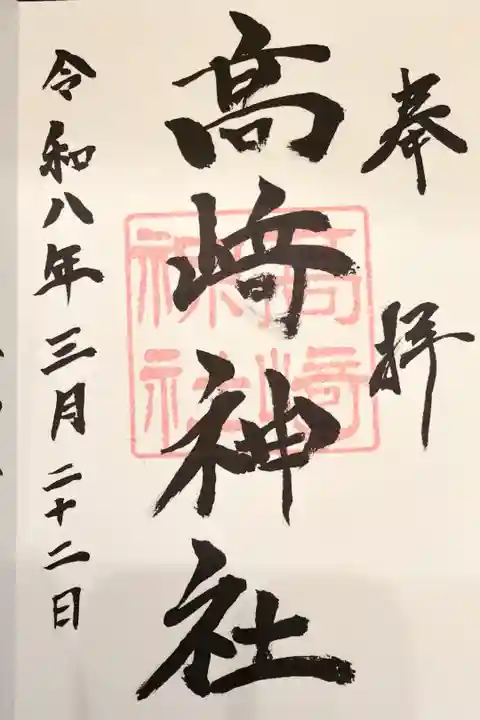 奉拝
髙﨑神社
令和八年三月二十二日
髙﨑
神社